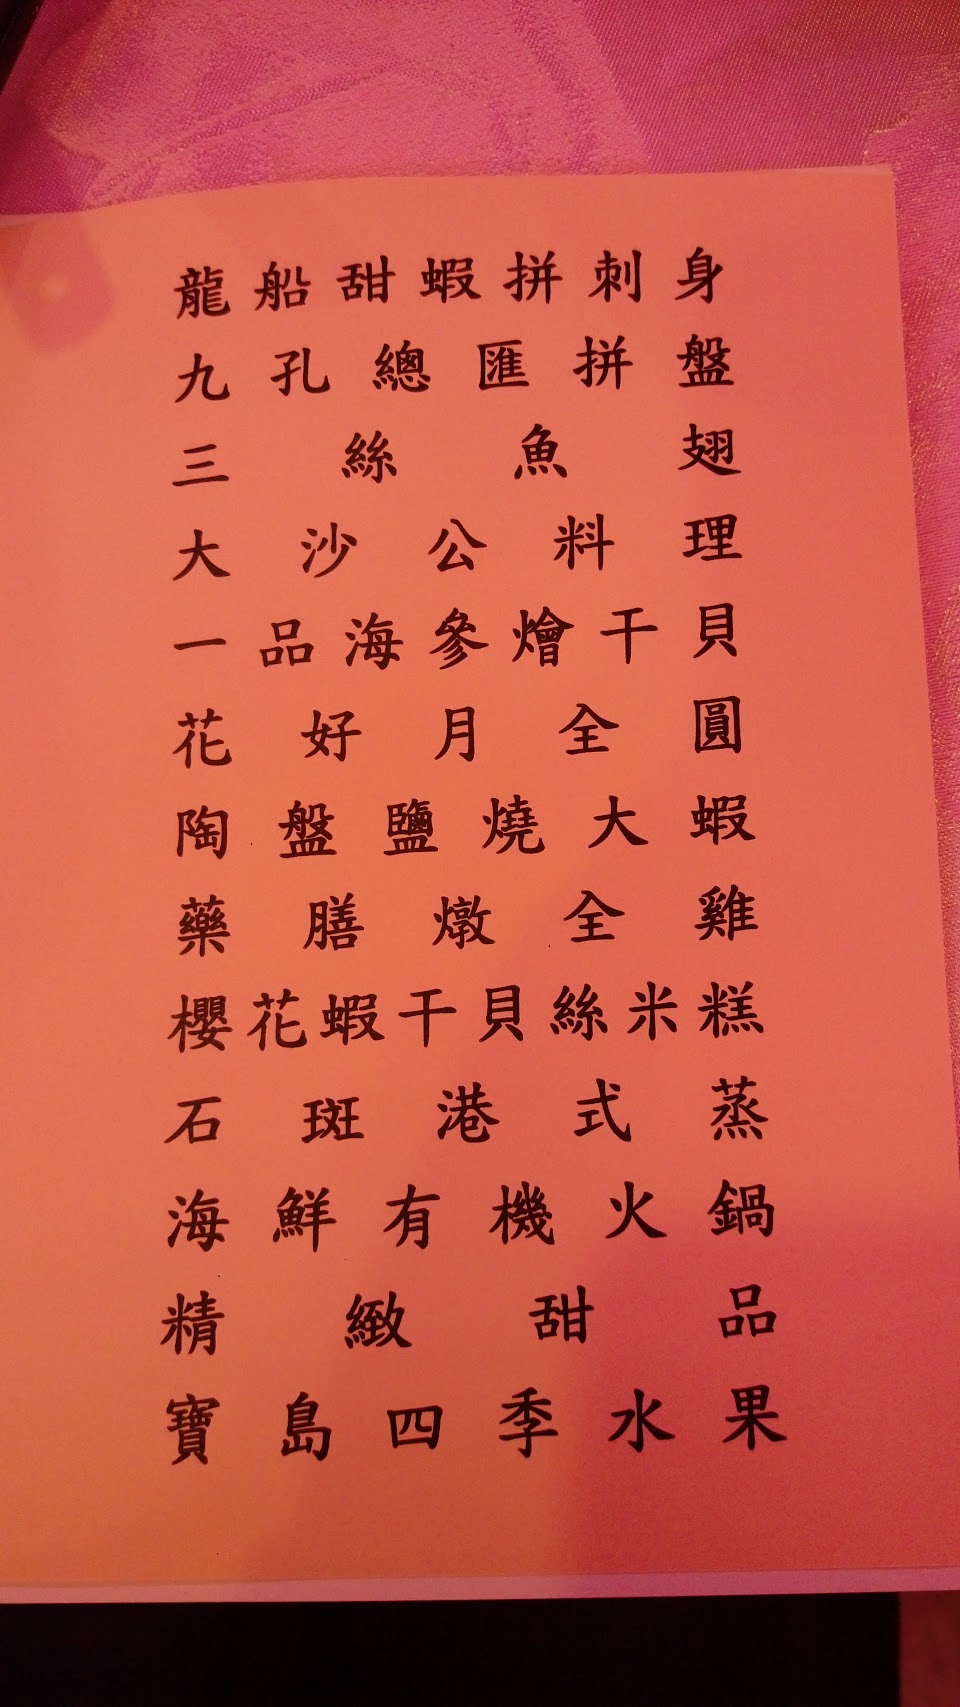 龍船甜蝦拼刺身
九孔總匯拼盤
三絲魚翅
大沙公料理
一品海參燴干貝
花好月全圓
陶盤鹽燒大蝦
藥膳燉全雞
櫻花蝦干貝絲米糕
石斑港式蒸
海鮮有機火鍋
精緻甜品
寶島四季水果